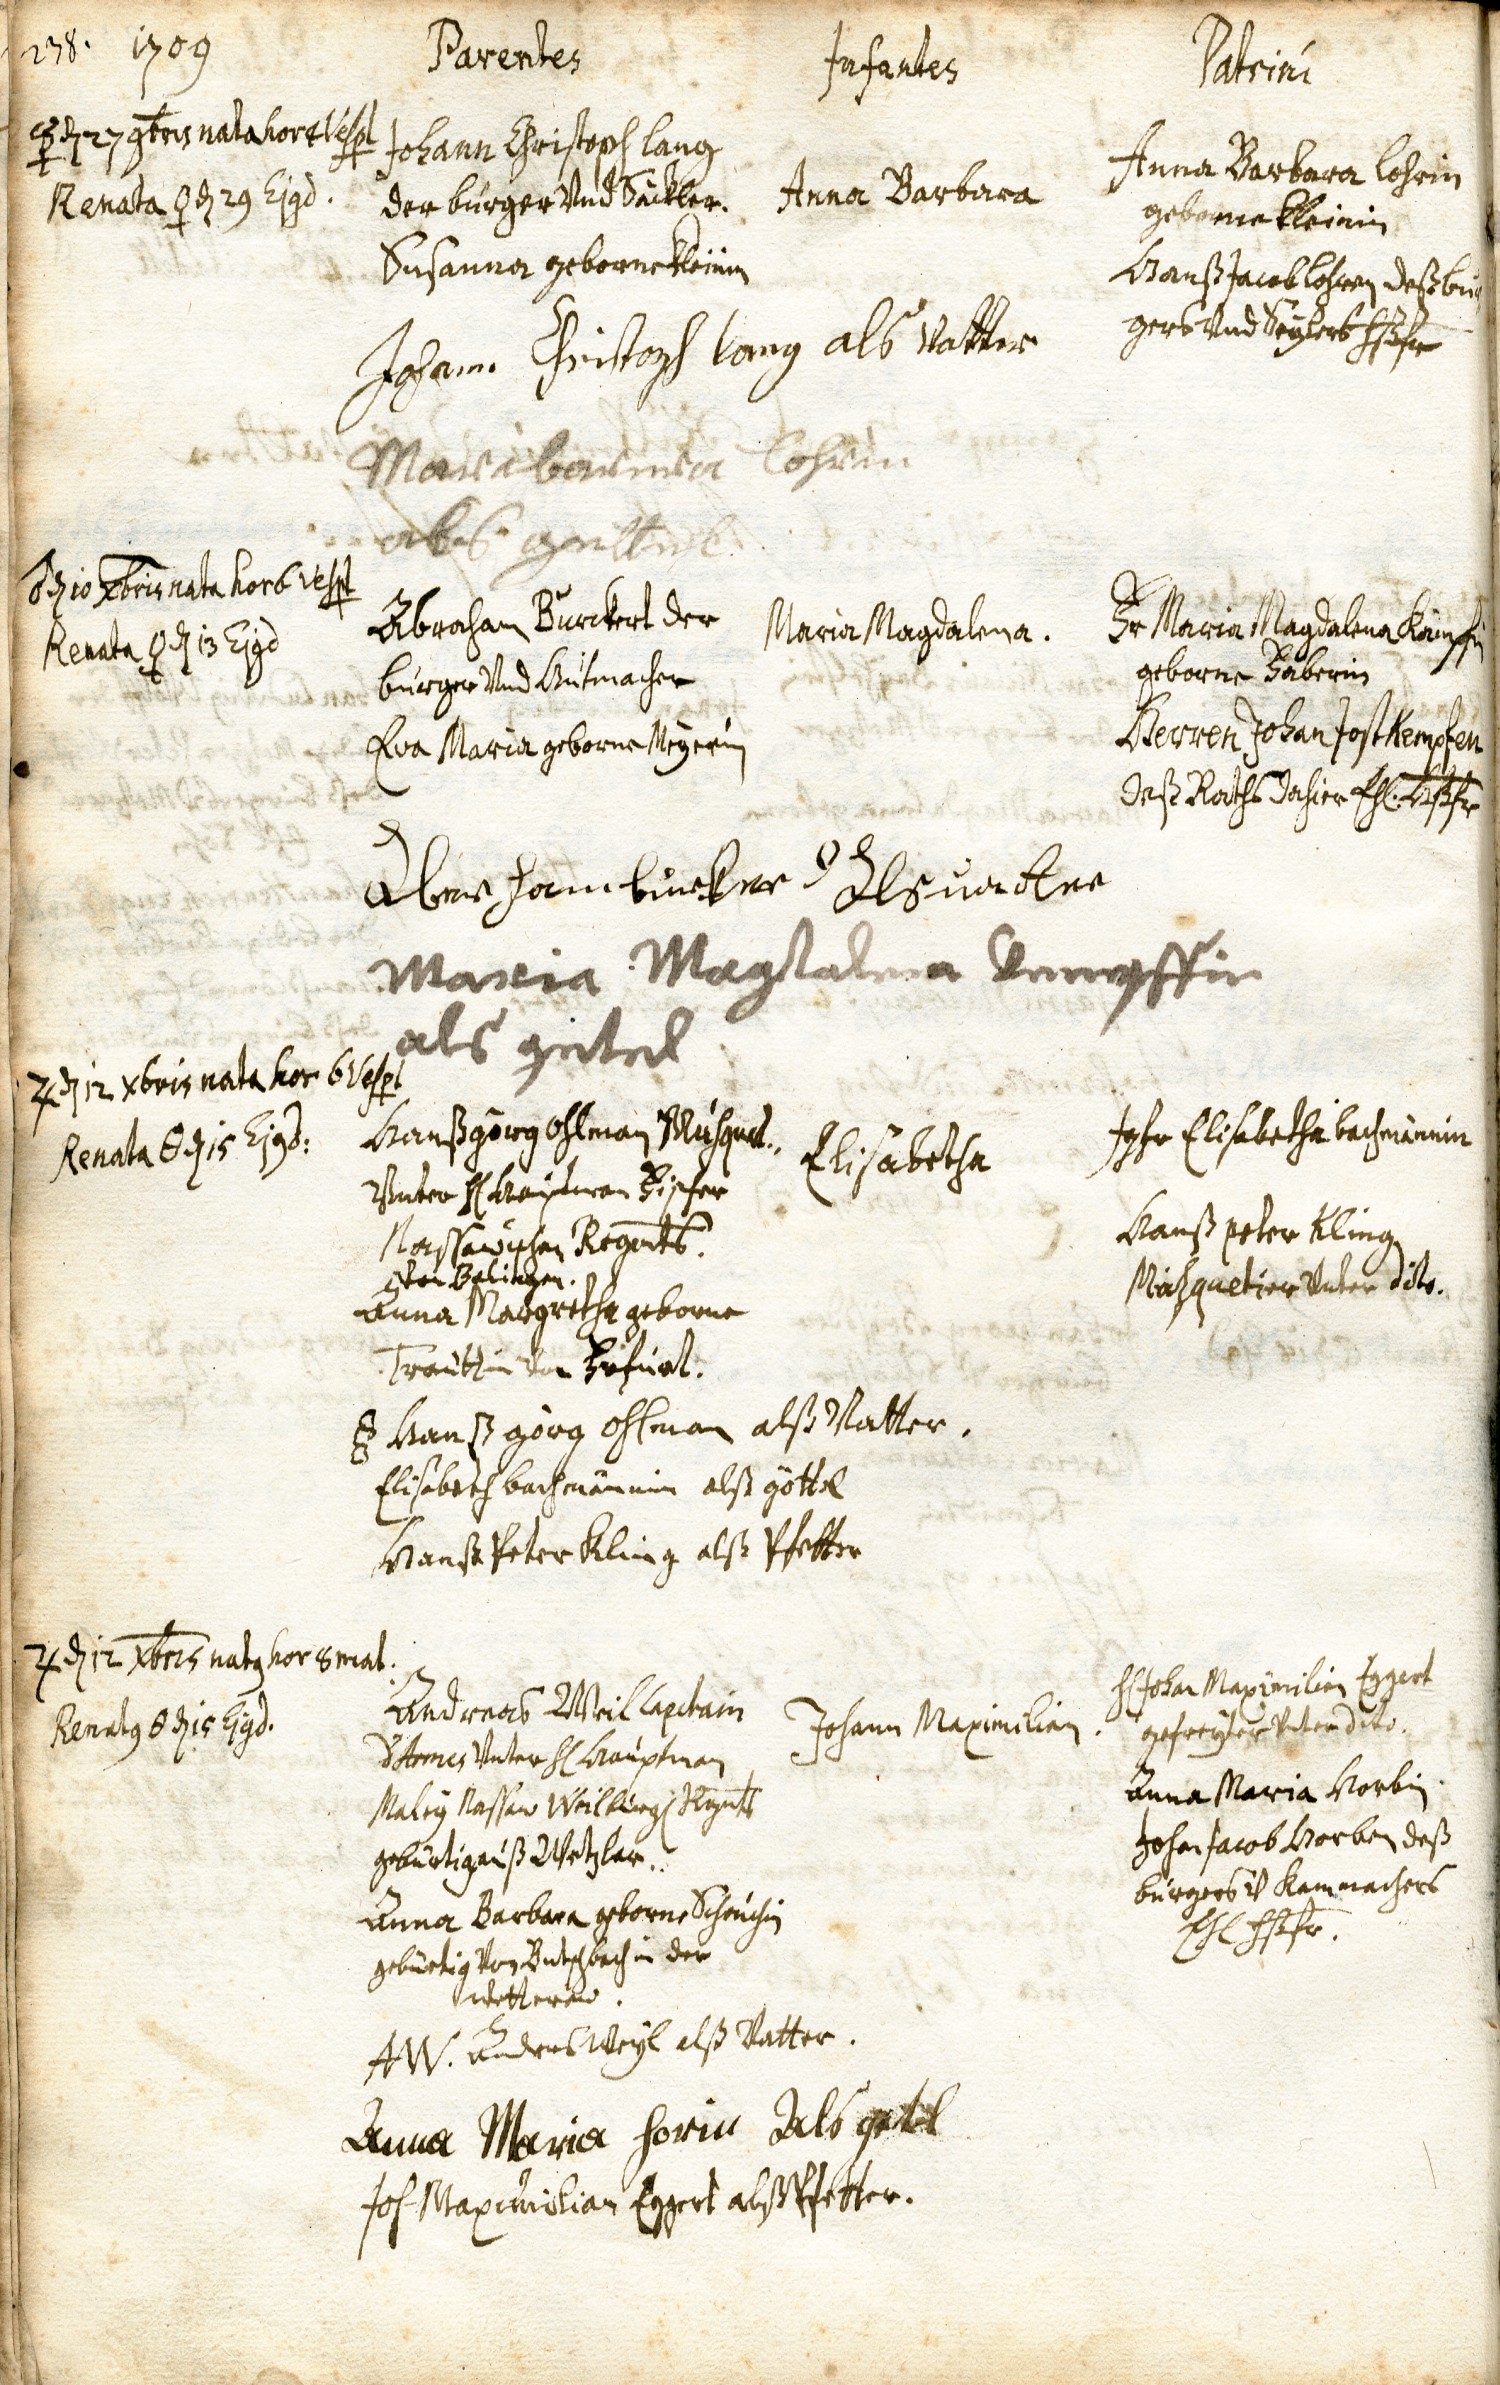 238. 1709 Parentes Infantes Patrini
☿ dē 27 9bris nata hor 4 Vesp
Renata ♀ dē 29 Ejgd.
Johann Christoph Lang
der burger Vnd Säckler.
Susanna geborne Kleinin
Anna Barbara
Anna Barbara Lohrin
geborne Kleinin
Hanß Jacob Lohren deß bur
gers Vnd Seylers Hßfr
Johann Christoph Lang als Vatter
Maria barbara Lohrin
als göttel
♂ dē 10 Xbris nata hor 6 Vesp
Renata ♀ dē 13 Ejgd
Abraham Burckert der
burger Vnd Hutmacher
Eva Maria geborne Meyerin
Maria Magdalena.
Fr Maria Magdalena Kämpfin
geborne Haberin
Herren Johan Jost Kempfen
deß Raths dahier Ehl. Haßfr
Abraham burcker Als vatter
Maria Magdalena Kempffin
als götel
♃ dē 12 xbris nata hor 6 Vesp
Renata dē 15 Ejgd:
Hanß görg Ohlman Musquet.,
Vnter H Hauptman
Nassawischen Regmts.
von
Anna Margretha geborne
von
Elisabetha
Jgfr Elisabetha bachmännin
Hanß peter Kling
Musquetier Vnter dito.
Hanß görg Ohlman alß Vatter.
Elisabeth bachmännin alß göttel
Hanß Peter Kling alß Pfetter
♃ dē 12 Xbris natus hor 8 mat.
Renatus dē 15 Ejgd.
Andreas Weil Capitain
d'Armes Vnter H Hauptman
Nassaw Weilburg Regmts
gebürtig auß Wetzlar.
Anna Barbara geborne
gebürtig Von Butschbach in der
wetteraw.
Johann Maximilian.
H Johan Maximilian Eggert
gefreyter Vnter dito.
Anna Maria Horbin
Johan Jacob Horben deß
burgers V Kammachers
Ehl Hßfr.
AW. Andreas Weyl alß Vatter.
Anna Maria horin Als getel
Joh Maximilian Eggert alß Pfetter.